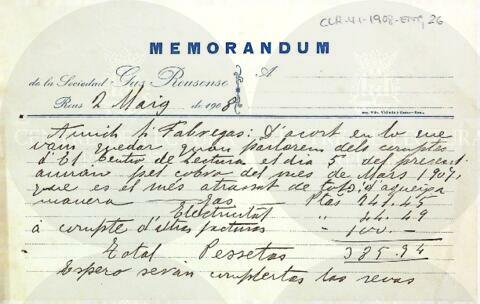 CLR-41-1908-ENG, 26
MEMORANDUM
de la Sociedad Gas Reusense A
Reus 2 Maig de 1908
Amich Sr Fabregas: D'acort en lo que
vam quedar quan parlarem dels comptes
d'El Centro de Lectura el dia 5 del present
aniran pel cobro del mes de Mars 1907,
que es el més atrassat de tots; d'aqueixa
manera Gas Ptas 241.45
Electricitat " 44.49
à compte d'altres facturas " 100.—
Total Pessetas 385.94
Espero seran complertas las sevas